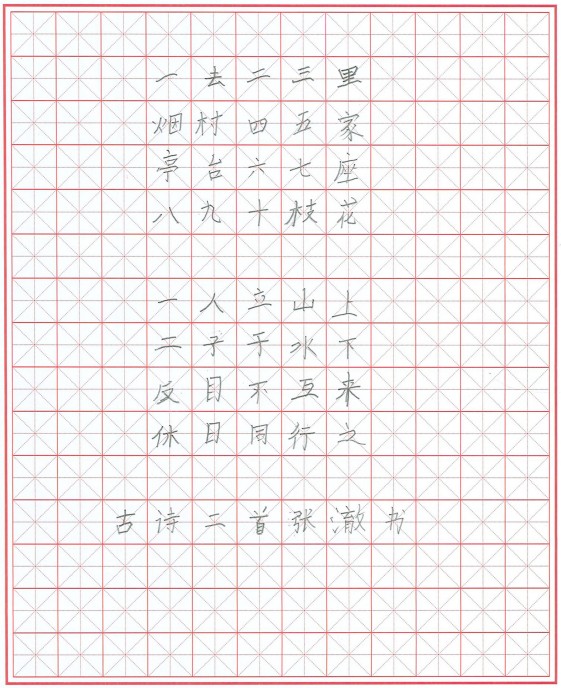 一去二三里
烟村四五家
亭台六七座
八九十枝花
一人立山上
二子于水下
反目不互来
休日同行之
古诗二首张澈书